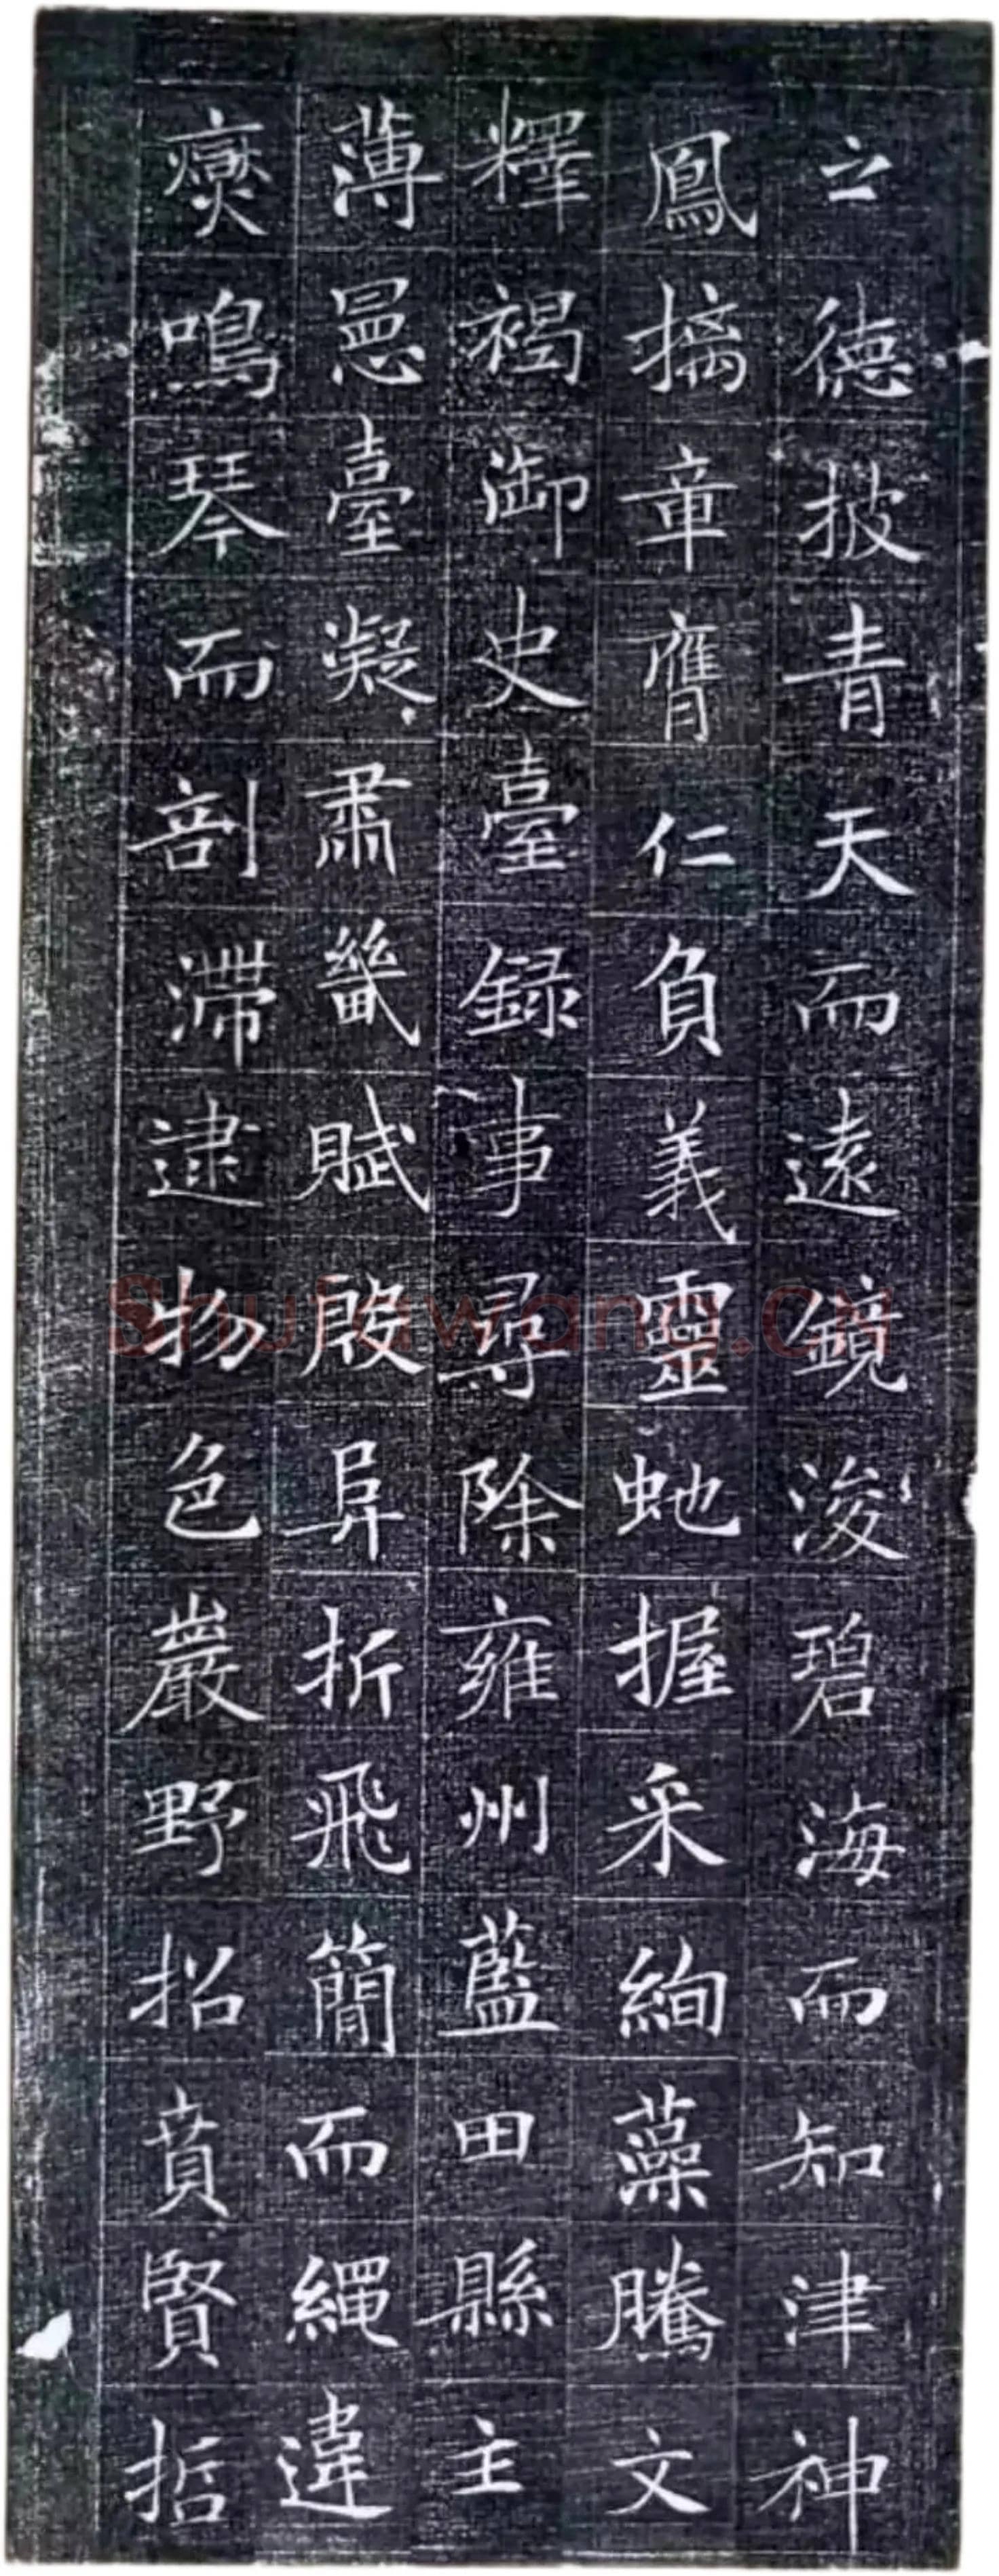 之德披青天而遠鏡浚碧海而知津神
鳳摛章膺仁負義靈虵握采絢藻騰文
釋褐御史臺録事尋除雍州藍田縣主
薄罳臺凝肅畿賦殷阜折飛簡而繩違
爕鳴琴而剖滯逮物色巖野招賁賢哲
Shufawang.cn